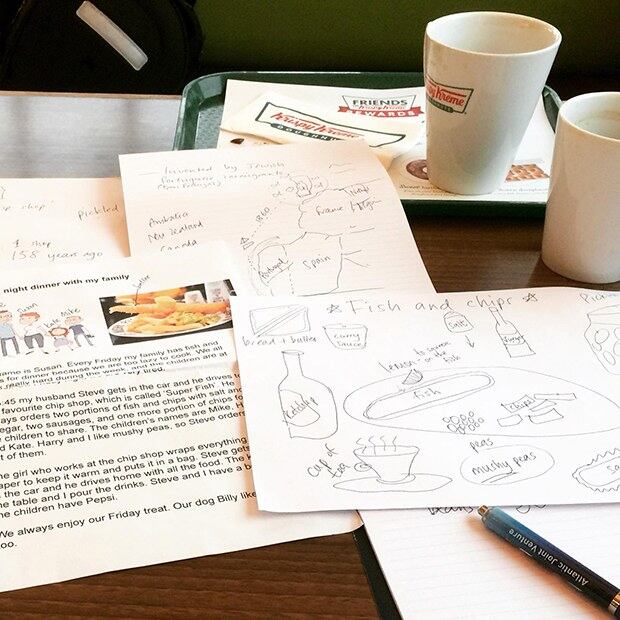 FRIENDS
REWARDS
Krispy Kreme
DOUGHNUTS
Krispy Kreme
Invented by Jewish
Portuguese immigrants
Australia
New Zealand
Canada
Portugal
Spain
France
Pickled
shop
158 years ago
night dinner with my family
batter
Susan
Kate
Mike
ame is Susan. Every Friday my family has fish and
s for dinner because we are too lazy to cook. We all
really hard during the week, and the children are at
:45 my husband Steve gets in the car and he drives t
favourite chip shop, which is called 'Super Fish'. He
ays orders two portions of fish and chips with salt and
egar, two sausages, and one more portion of chips fo
e children to share. The children's names are Mike, H
d Kate. Harry and I like mushy peas, so Steve orders
t of them.
he girl who works at the chip shop wraps everything
aper to keep it warm and puts it in a bag. Steve gets
the car and he drives home with all the food. The k
he table and I pour the drinks. Steve and I have a b
he children have Pepsi.
We always enjoy our Friday treat. Our dog Billy like
oo.
Fish and chips
bread + butter
curry
sauce
Salt
to squeeze
lemon on the
fish
Ketchup
fish
chips
peas
cup of
tea
mushy peas
Atlantic Joint Venture